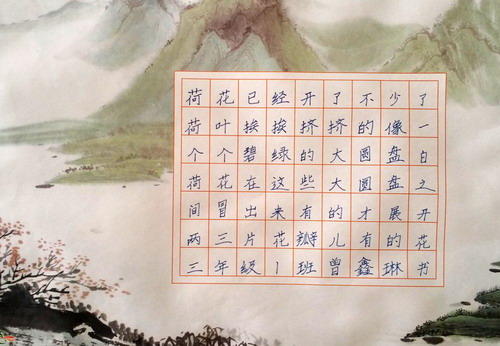 荷花已经开了不少了
荷叶挨挨挤挤的像一
个个碧绿的大圆盘白
荷花在这些大圆盘之
间冒出来有的才展开
两三片花瓣儿有的花
三年级1班曾鑫琳书